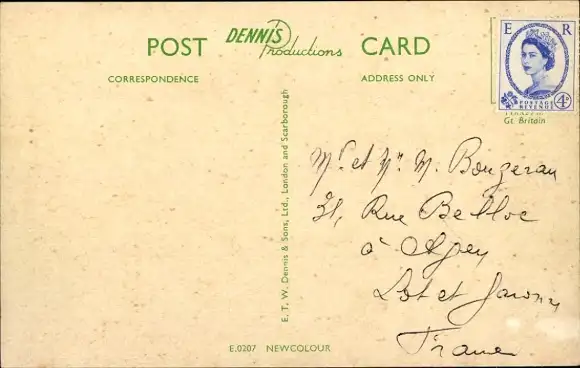 POST DENNIS Productions CARD
CORRESPONDENCE
ADDRESS ONLY
E R
POSTAGE
REVENUE
4D
Gt. Britain
E. T. W. Dennis & Sons, Ltd., London and Scarborough
Mr et Mme M. Bouzeran
31, Rue Belloc
à Agen
Lot et Garonne
France
E.0207 NEWCOLOUR